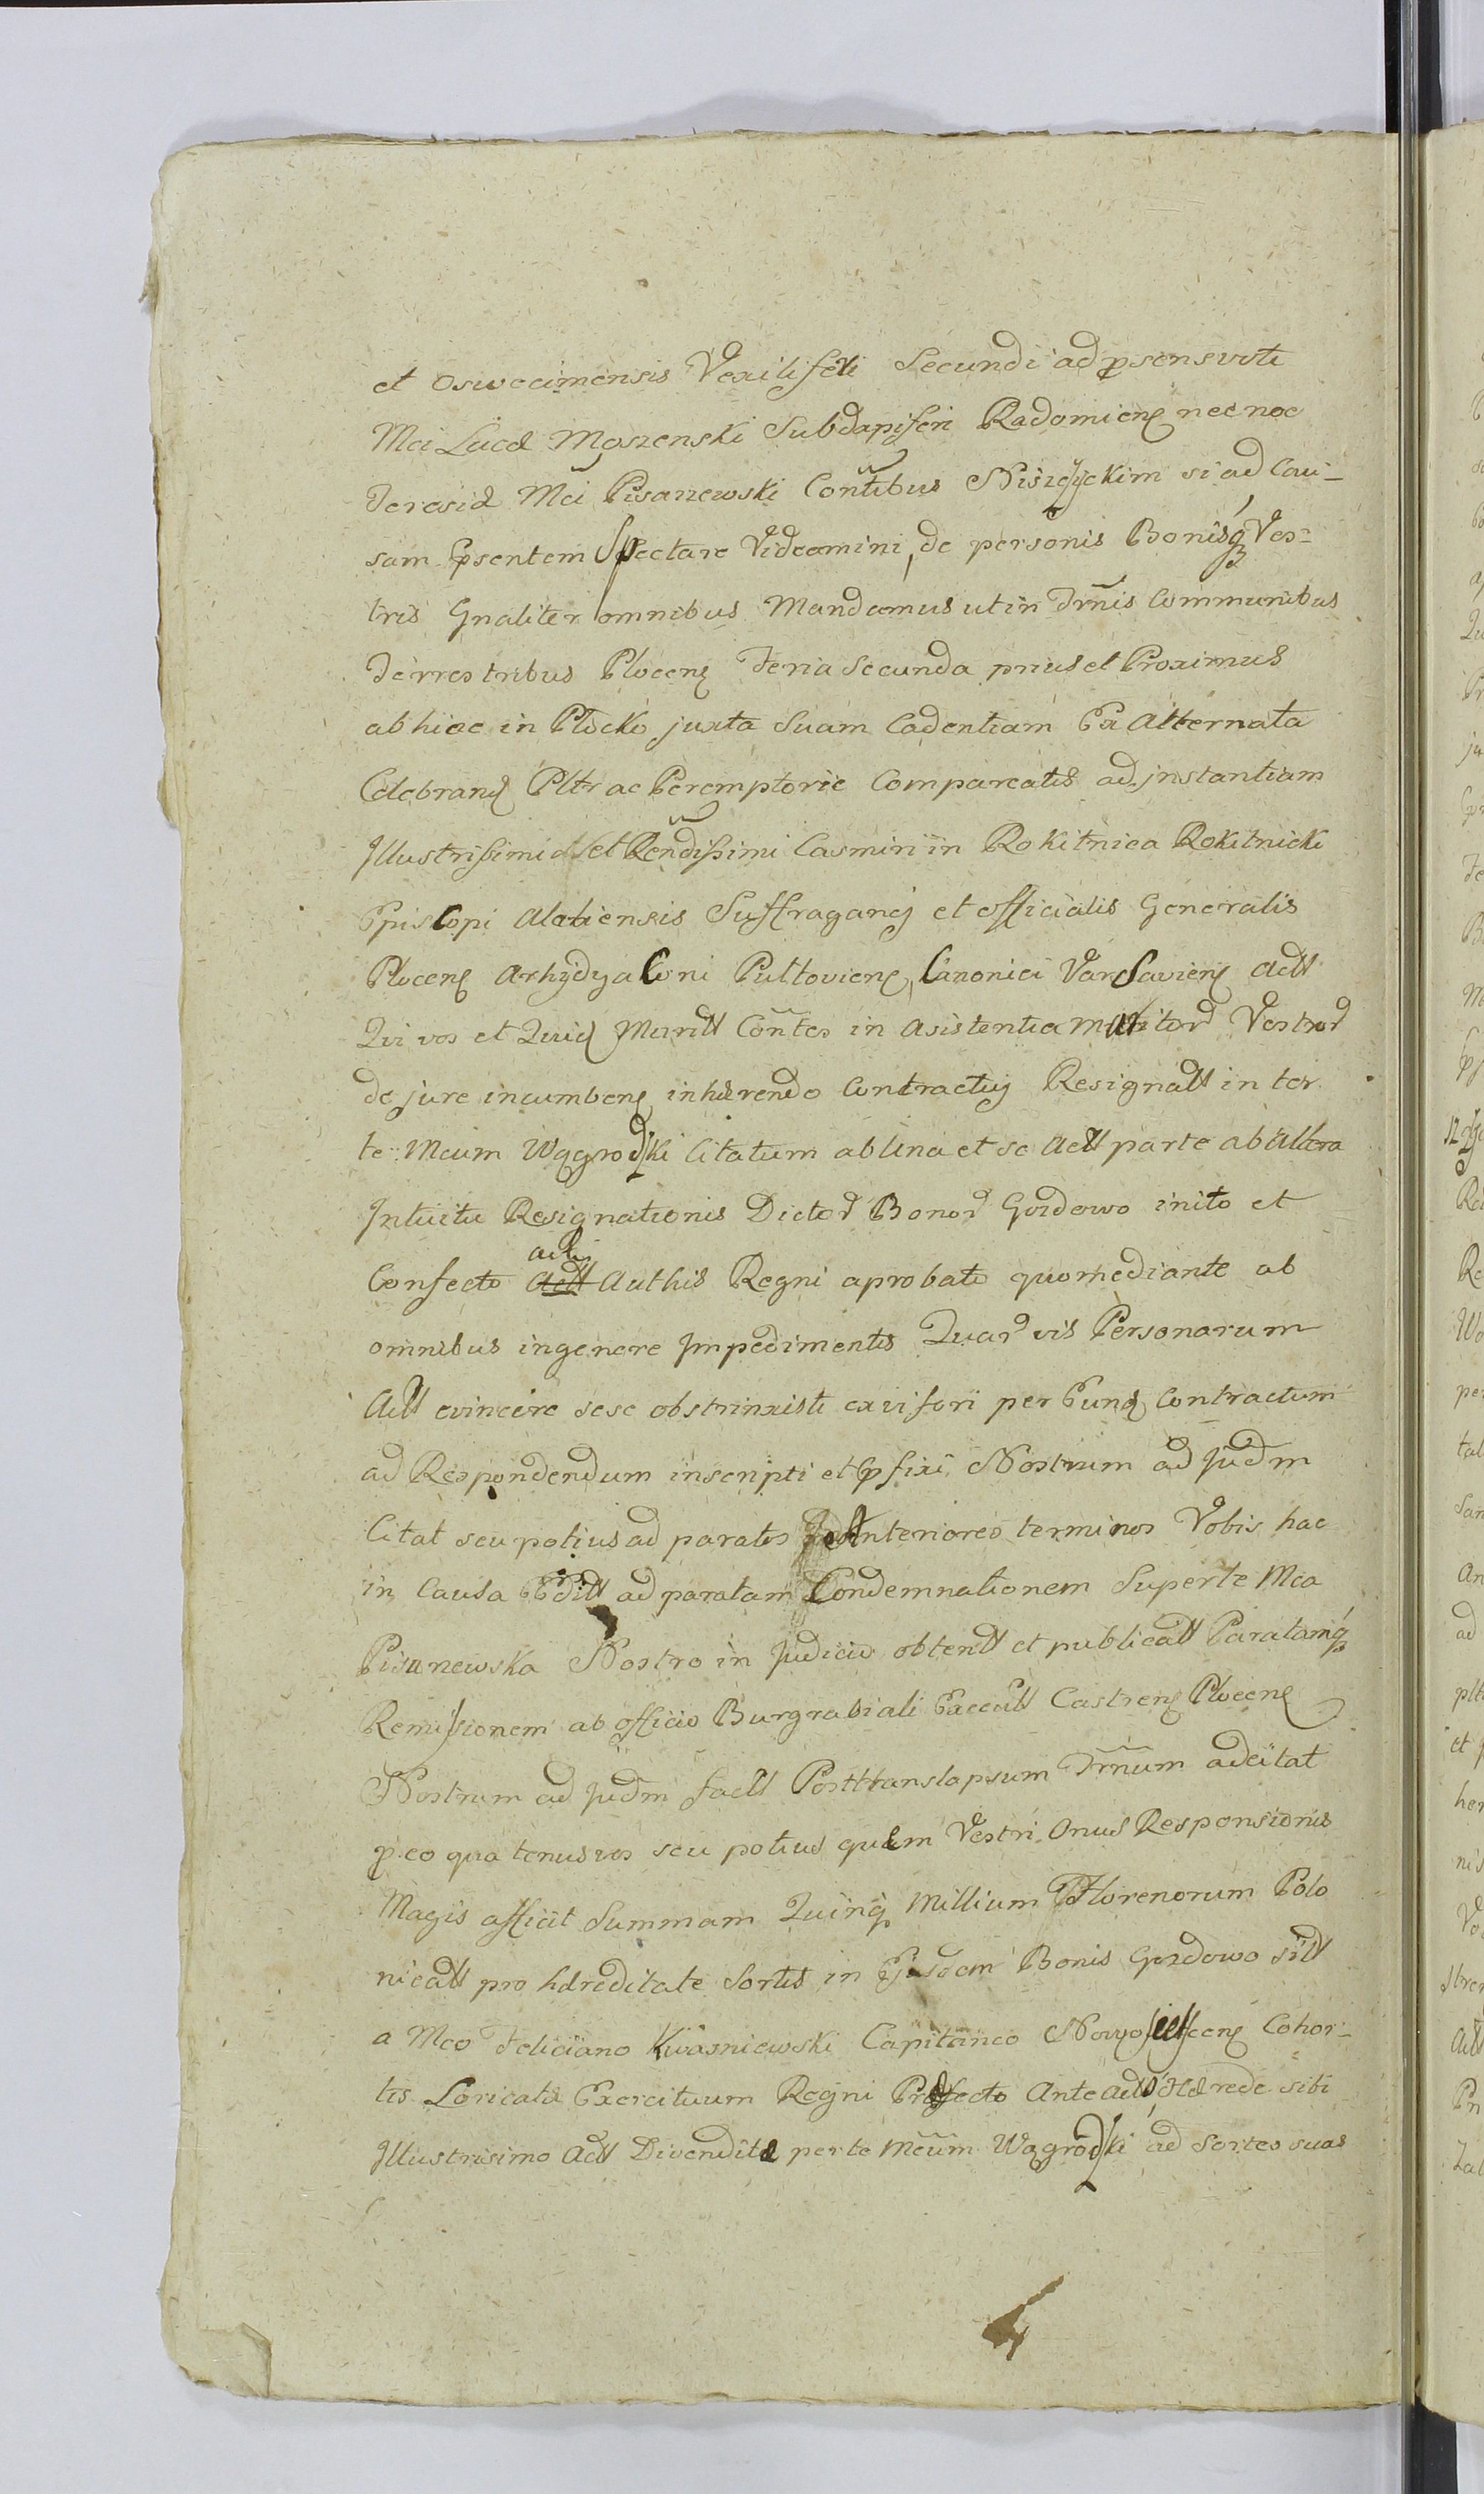 et Oswecimensis Vexiliferi Secundi ad psens vivti
Mci Lucæ Moszenski Subdapiferi Radomiens necnoc
Teresiæ Mci Pisanewski Contibus Niszczyckim si ad Cau-
sam Epsentem Spectare Videamini, de personis Bonisq Ves-
tris Gnaliter omnibus Mandamus ut in Trnis Communibus
Terrestribus Plocens Feria Secunda prius et Proximus
abhinc in Plocko juxta Suam Cadentiam Ex Alternata
Celebrand Pltr ac Peremptorie Compareatis ad jnstantiam
Jllustrissimi et Rendissimi Casmiri in Rokitnica Rokitnicki
Episcopi Alatiensis Suffraganej et officialis Generalis
Plocens Arhydyaconi Pultoviens, Canonici Varsaviens Actt
Qui vos et Quid Maritt Contes in Asistentia Maritor Vestror
de jure incumbens inhærendo Contractuj Resignatt inter
te Mcum Wągrodski Citatum ab Una et se Actt parte ab Altera
Jntuitu Resignationis Dictor Bonor Gozdowo inito et
actis
Confecto Actt Authis Regni aprobato quo mediante ab
omnibus ingenere Jmpedimentis Quar vis Personarum
Actt evincere sese obstrinxisti ex vi fori per Eund Contractum
ad Respondendum inscripti et Epfixi Nostrum ad Judm
Citat seu potius ad paratos Anteriores terminos Vobis hac
in Causa Editt ad paratam Condemnationem Super te Mca
Pisanewska Nostro in Judicio obtentt et publicatt Paratamq
Remissionem ab officio Burgrabiali Exccutt Castrens Plocens
Nostrum ad Judm factt Posttranslapsum Trnum adcitat
p eo qua tenus vos seu potius quem Vestri Onus Responsionis
Magis afficit Summam Quinq Millium Florenorum Polo
nicatt pro hdreditate Sortis in Ejusdem Bonis Gozdowo sitt
a Mco Feliciano Kwasniewski Capitaneo Cohor-
tis Loricatæ Exercituum Regni Præfecto Ante Actto Hærede sibi
Jllustrisimo Actt Divenditæ per te Mcum Wągrodski ad Sortes suas